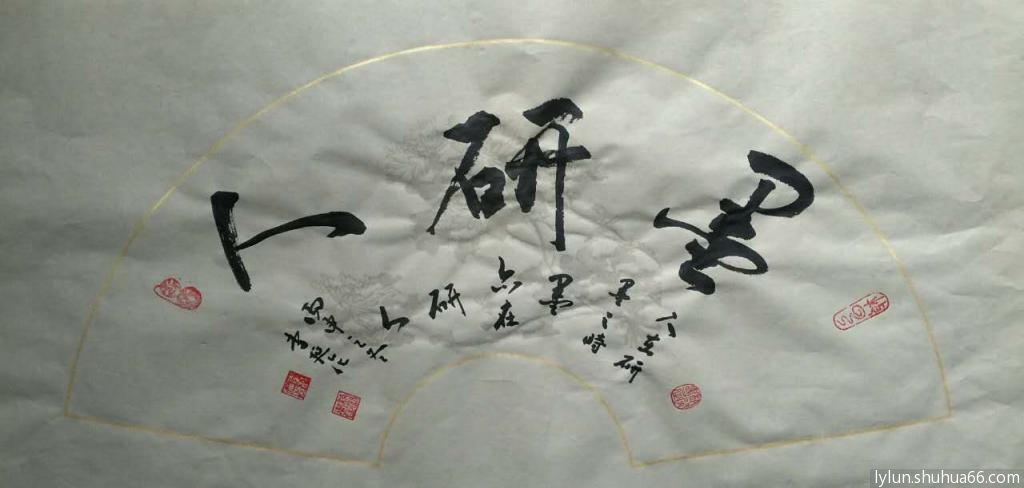 墨研人
人在研
墨之時
墨
亦在
研
人
丙申之冬
李
lylun.shuhua66.com